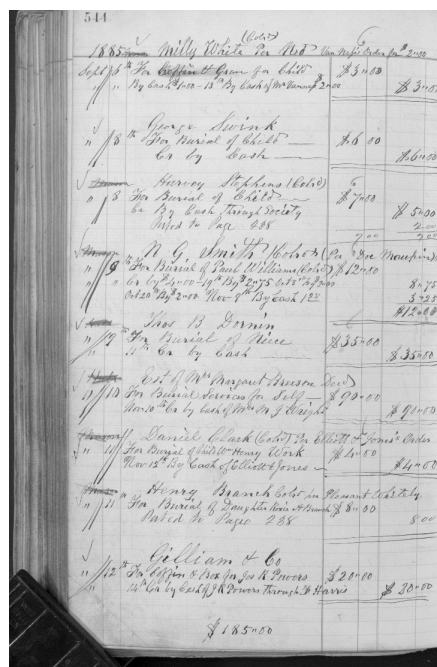 544
(Cold)
1885 Milly White Per Mrs Van Ness Order for $2.00
Sept 6th For Coffin & Grave for Child $3.00
" " By Cash $1.00 - 15th By Cash of Mrs Vanness $2.00 $3.00
George Swink
" 8th For Burial of Child $6.00
Cr by Cash $6.00
Harvey Stephens (Cold)
" 8 For Burial of Child $7.00
Cr By Cash through Society $5.00
Posted to Page 238 2.00
7.00 7.00
N. G. Smith (Cold) (Per Doc Maupin)
" 9th For Burial of Paul Williams (Cold) $12.00
" " Cr by $4.00 - 19th By $2.75 8.75
Oct 20th By $2.00 Nov 9th By Cash 1.25 3.25
$12.00
Thos B. Dornin
" 9th For Burial of Niece $35.00
11th Cr by Cash $35.00
Est of Mrs Margaret Benson Decd
" 10 For Burial Services for Self $90.00
Nov 10th Cr by Cash of Mrs M. J. Wright $90.00
Daniel Clack (Cold) Per Elliott & Jones Order
" 10 For Burial of Child Henry Work $4.00
Nov 12th By Cash of Elliott & Jones $4.00
Henry Branch Cold in Pleasant
" 11th For Burial of Daughter Branch $8.00
Posted to Page 238 8.00
Gilliam & Co
" 12th For Coffin & Box for Jos R Powers $20.00
" 14th Cr by Cash of J R Powers through Harris $20.00
$185.00